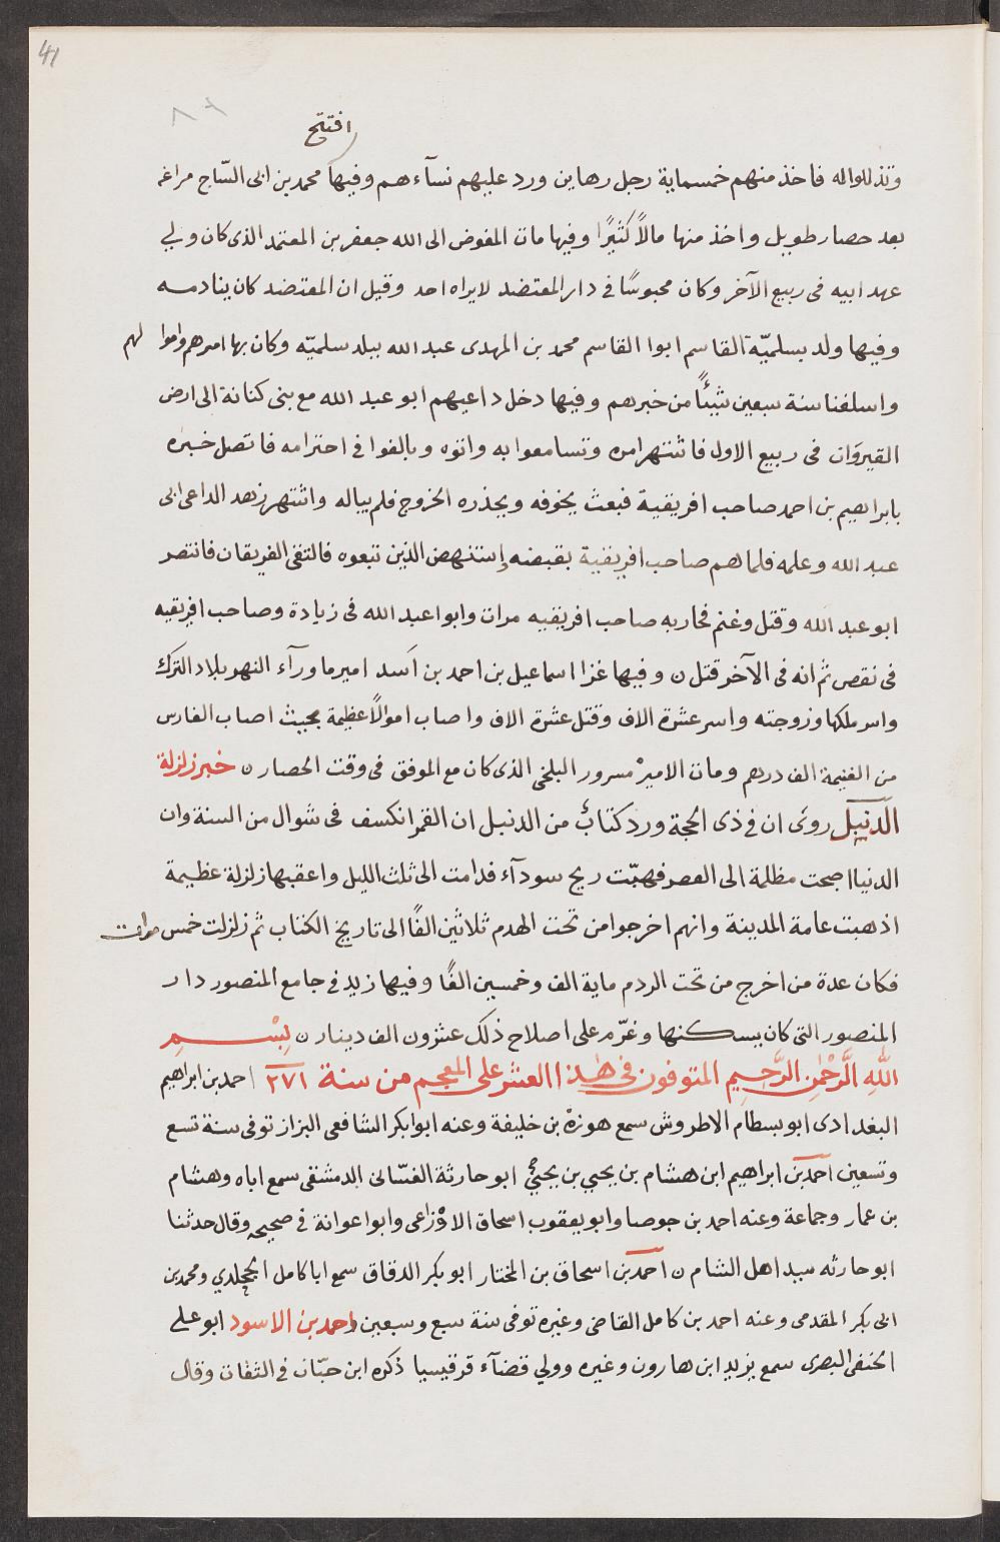 41
٨٦
افتتح
وتذللواله فاخذ منهم خمسماية رجل رهاين ورد عليهم نسآءهم وفيها محمد بن ابى السّاج مراغه
بعد حصار طويل واخذ منها مالاً كثيرًا وفيها مات المفوض الى الله جعفر بن المعتمد الذى كان ولي
عهد ابيه فى ربيع الآخر وكان محبوسًا فى دار المعتضد لايراه احد وقيل ان المعتضد كان ينادمه
وفيها ولد بسلميّة القاسم ابوا القاسم محمد بن المهدى عبد الله ببلد سلميّه وكان بها امرهم واموا لهم
واسلفنا سنة سبعين شيئًا من خبرهم وفيها دخل داعيهم ابو عبد الله مع بنى كنانة الى ارض
القيروَان فى ربيع الاول فاشتهر امره وتسامعوا به واتوه وبالغوا فى احترامه فاتصل خبره
بابراهيم بن احمد صاحب افريقية فبعث يخوفه ويحذره الخروج فلم يباله واشتهر زهد الداعى ابى
عبد الله وعلمه فلما هم صاحب افريقية بقبضه استنهض الذين تبعوه فالتقى الفريقان فانتصر
ابو عبد الله وقتل وغنم فحاربه صاحب افريقيه مرات وابوا عبد الله فى زيادة وصاحب افريقيه
فى نقص ثم انه فى الآخر قتل ن وفيها غزا اسماعيل بن احمد بن اسد امير ما ورآء النهر بلاد الترك
واسر ملكها وزوجته واسر عشرة الاف وقتل عشرة الاف واصاب اموالاً عظيمة بحيث اصاب الفارس
من الغنيمة الف درهم ومات الامير مسرور البلخى الذى كان مع الموفق فى وقت الحصار ن خبر زلزلة
الدنبيل روى ان فى ذى الحجة ورد كتابٌ من الدنبل ان القمر انكسف فى شوال من السنة وان
الدنيا اصحت مظلمة الى العصر فهبّت ريح سودآء فدامت الى ثلث الليل واعقبها زلزلة عظيمة
اذهبت عامة المدينة وانهم اخرجوا من تحت الهدم ثلاثين الفًا الى تاريخ الكتاب ثم زلزلت خمس مرات
فكان عدة من اخرج من تحت الردم ماية الف وخمسين الفًا وفيها زيد فى جامع المنصور دار
المنصور التى كان يسكنها وغرّم على اصلاح ذلك عشرون الف دينار ن بِسْمِ
اللهِ الرَّحْمٰنِ الرَّحِيم المتوفون فى هٰذا العشر على المعجم من سنة ٢٧١ احمد بن ابراهيم
البغدادى ابو بسطام الاطروش سمع هوزة بن خليفة وعنه ابوابكر الشافعى البزاز توفى سنة تسع
وتسعين احمد بن ابراهيم ابن هشام بن يحيي بن يحيى ابو حارثة الغسّانى الدمشقى سمع اباه وهشام
بن عمار وجماعة وعنه احمد بن جوصا وابو يعقوب اسحاق الاوزاعى وابوا عوانة فى صحيحه وقال حدثنا
ابو حارثه سيد اهل الشام ن احمد بن اسحاق بن المختار ابو بكر الدقاق سمع ابا كامل الجحلدي ومحمد بن
ابى بكر المقدمى وعنه احمد بن كامل القاضى وغيره توفى سنة سبع وسبعين احمد بن الاسود ابو على
الحنفى البصرى سمع يزيد ابن هارون وغيره وولي قضآء قرقيسيا ذكره ابن حبّان فى الثقات وقال